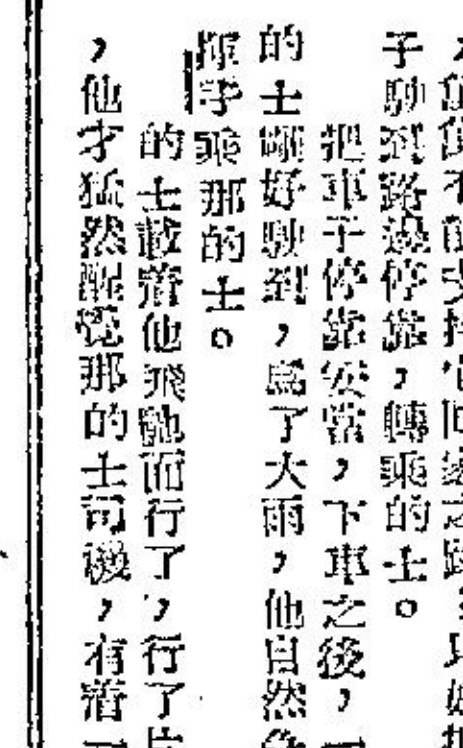 子駛到路邊停靠，轉乘的士。
把車子停靠安當，下車之後，一
的士剛好駛到，爲了大雨，他自然
揮手乘那的士。
的士載着他飛馳而行了，行了片
，他才猛然醒覺那的士司機，有着一